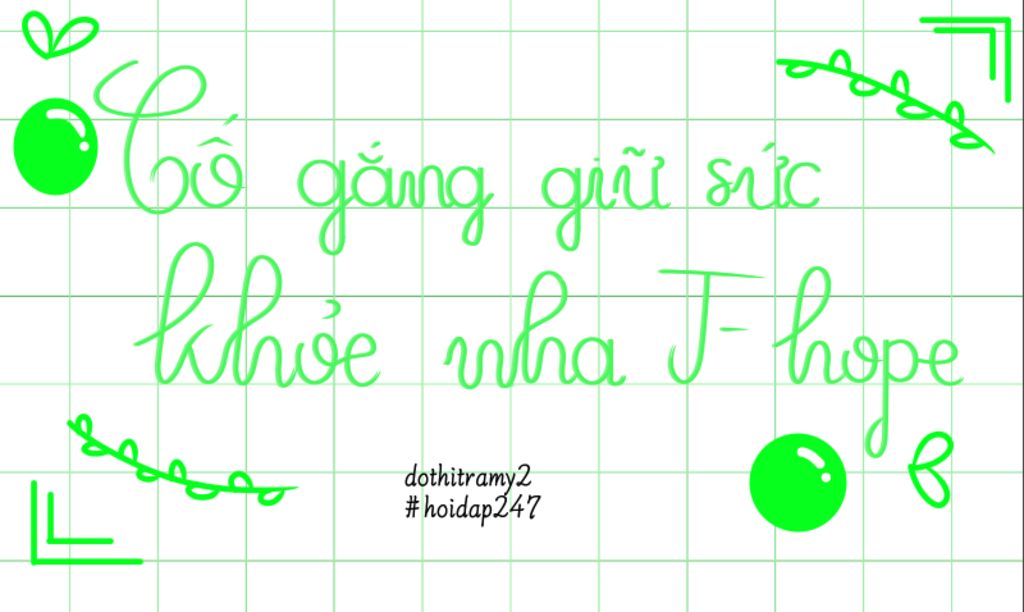 Cố gắng giữ sức
khỏe nha J-hope
dothitramy2
#hoidap247